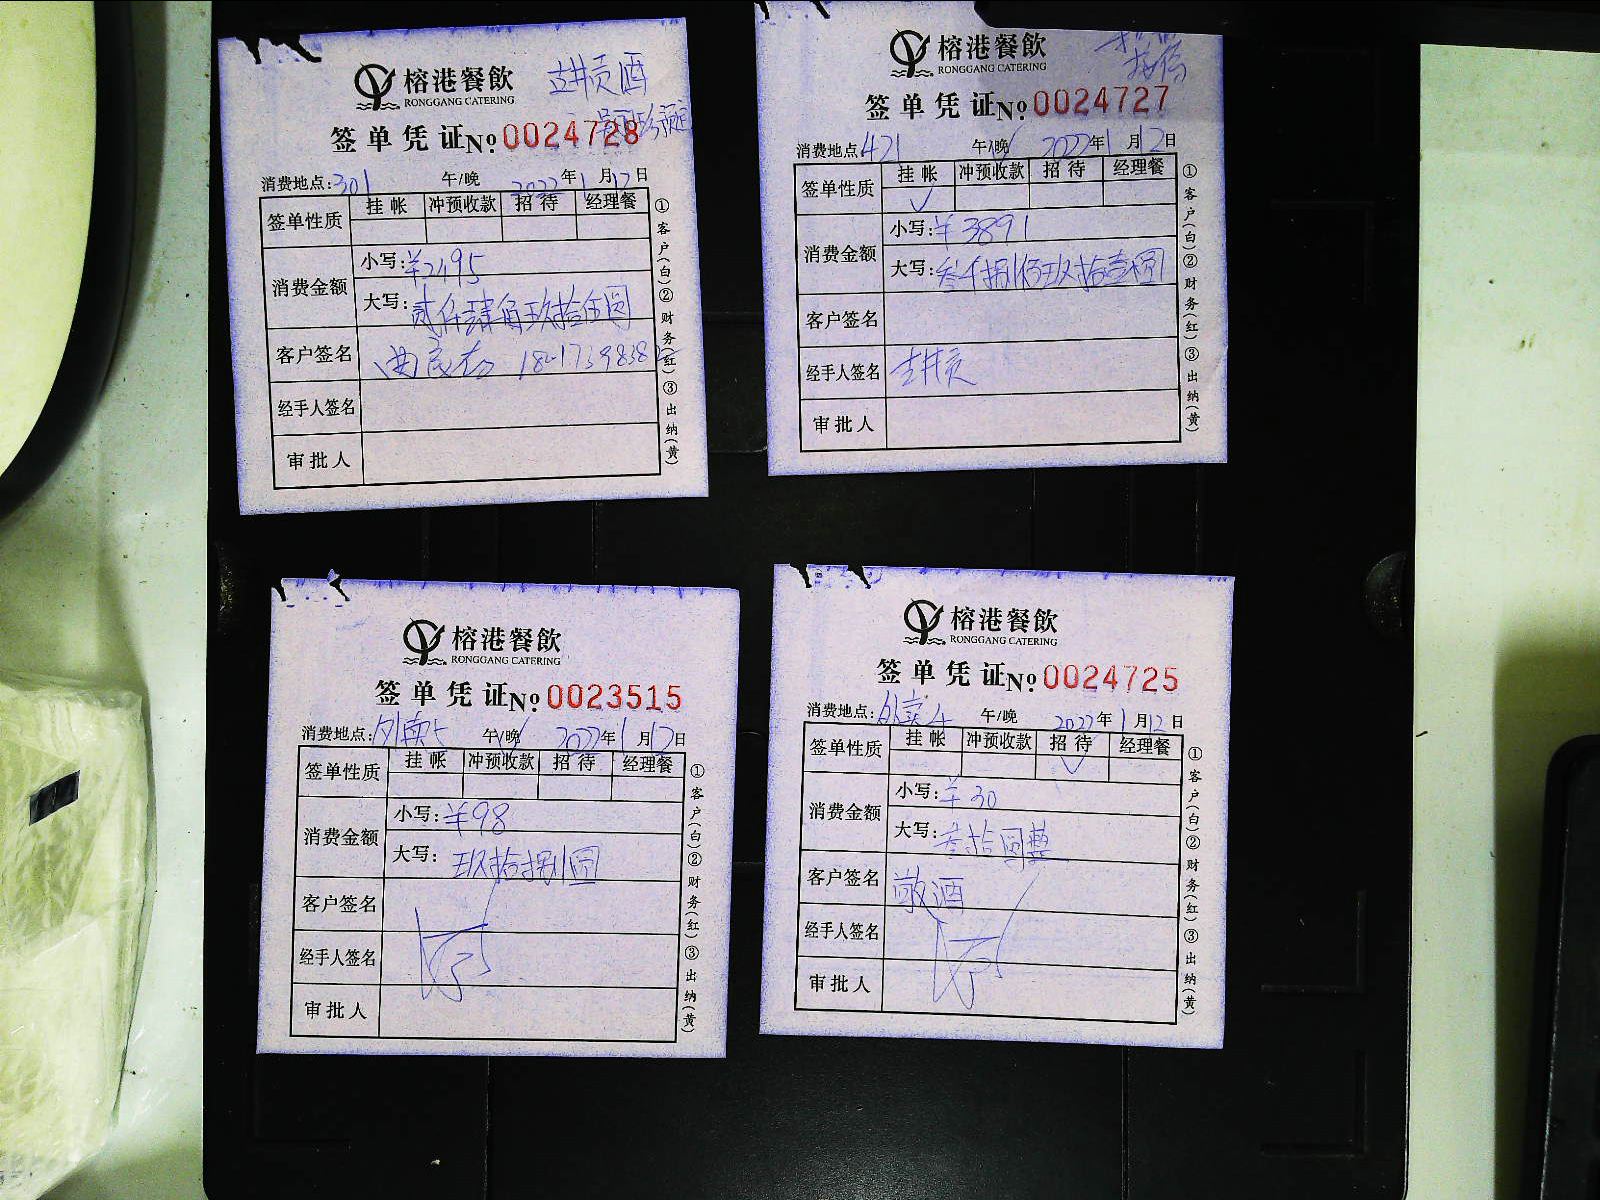 榕港餐飲
RONGGANG CATERING
签单凭证 No 0024728
消费地点: 301 午/晚 2022年1月12日
签单性质 挂帐 冲预收款 招待 经理餐
消费金额 小写: ¥2495
大写: 贰仟肆佰玖拾伍圆
客户签名
经手人签名
审批人
①客户(白)②财务(红)③出纳(黄)
榕港餐飲
RONGGANG CATERING
签单凭证 No 0024727
消费地点 421 午/晚 2022年1月12日
签单性质 挂帐 冲预收款 招待 经理餐
✓
消费金额 小写: ¥3891
大写: 叁仟捌佰玖拾壹圆
客户签名
经手人签名
审批人
①客户(白)②财务(红)③出纳(黄)
榕港餐飲
RONGGANG CATERING
签单凭证 No 0023515
消费地点: 外卖5 午/晚 2022年1月12日
签单性质 挂帐 冲预收款 招待 经理餐
消费金额 小写: ¥98
大写: 玖拾捌圆
客户签名
经手人签名
审批人
①客户(白)②财务(红)③出纳(黄)
榕港餐飲
RONGGANG CATERING
签单凭证 No 0024725
消费地点: 外卖4 午/晚 2022年1月12日
签单性质 挂帐 冲预收款 招待 经理餐
✓
消费金额 小写: ¥30
大写: 叁拾圆整
客户签名 敬酒
经手人签名
审批人
①客户(白)②财务(红)③出纳(黄)